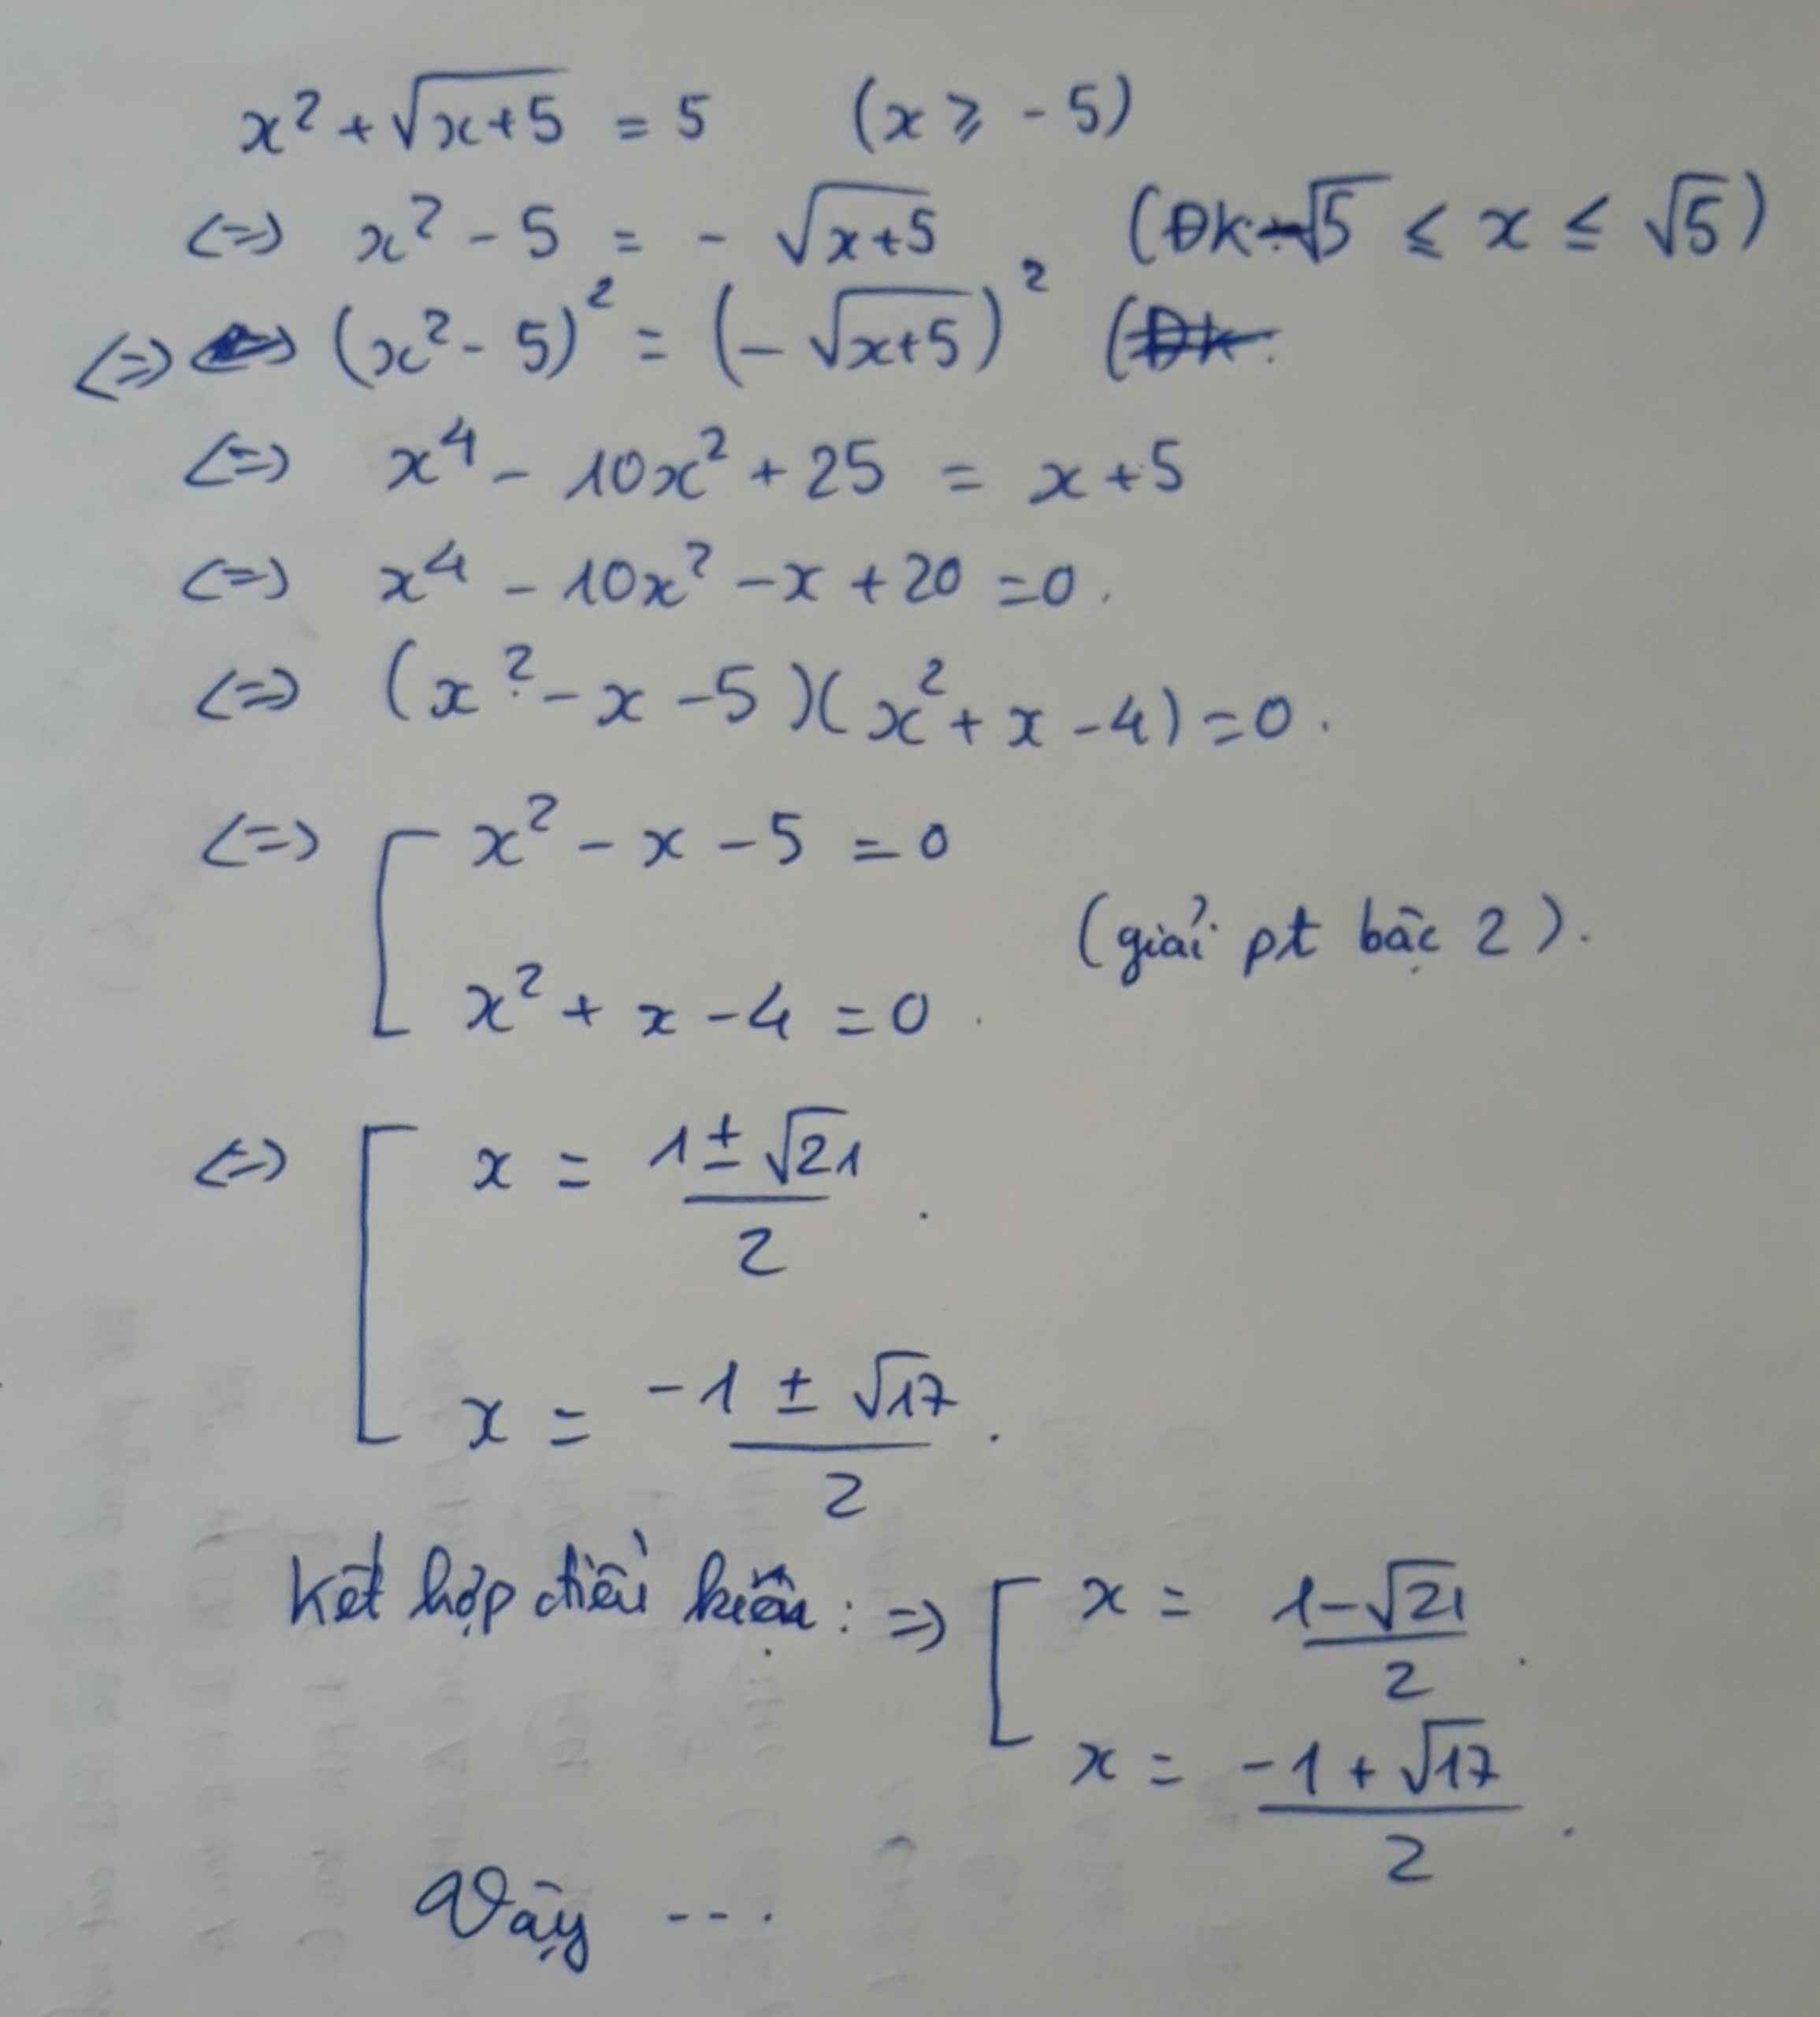 x² + √(x+5) = 5 (x ≥ -5)
<=> x² - 5 = - √(x+5) (ĐK: -√5 ≤ x ≤ √5)
<=> (x² - 5)² = (- √(x+5))² (Đk
<=> x⁴ - 10x² + 25 = x + 5
<=> x⁴ - 10x² - x + 20 = 0.
<=> (x² - x - 5)(x² + x - 4) = 0.
<=> [ x² - x - 5 = 0
(giải pt bậc 2).
x² + x - 4 = 0.
<=> [ x = (1 ± √21)/2.
x = (-1 ± √17)/2.
Kết hợp điều kiện: => [ x = (1 - √21)/2.
x = (-1 + √17)/2.
Vậy ---.